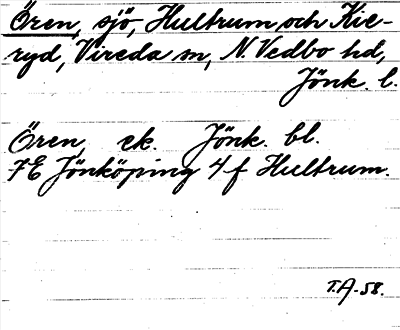 Ören, sjö, Hultrum, och Kie-
ryd, Vireda sn, N. Vedbo hd,
Jönk. l.
Ören, ek. Jönk. bl.
7E Jönköping 4f Hultrum.
T.A.-58.